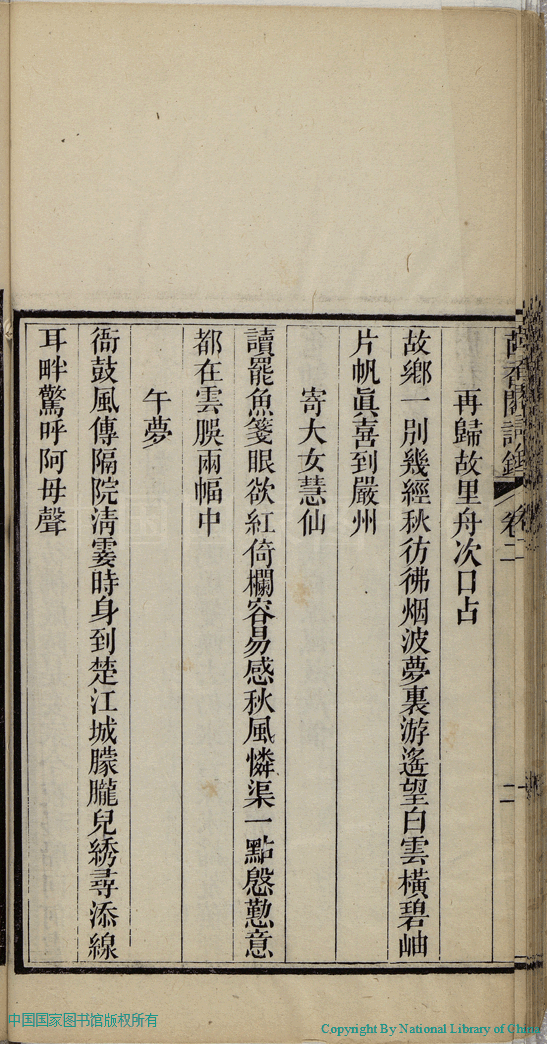 再歸故里舟次口占
故鄉一別幾經秋彷彿烟波夢裏游遙望白雲橫碧岫
片帆眞喜到嚴州
寄大女慧仙
讀罷魚箋眼欲紅倚欄容易感秋風憐渠一點慇懃意
都在雲牋兩幅中
午夢
衙鼓風傳隔院淸霎時身到楚江城朦朧兒綉尋添線
耳畔驚呼阿母聲
卷二
二
中国国家图书馆版权所有
Copyright By National Library of China